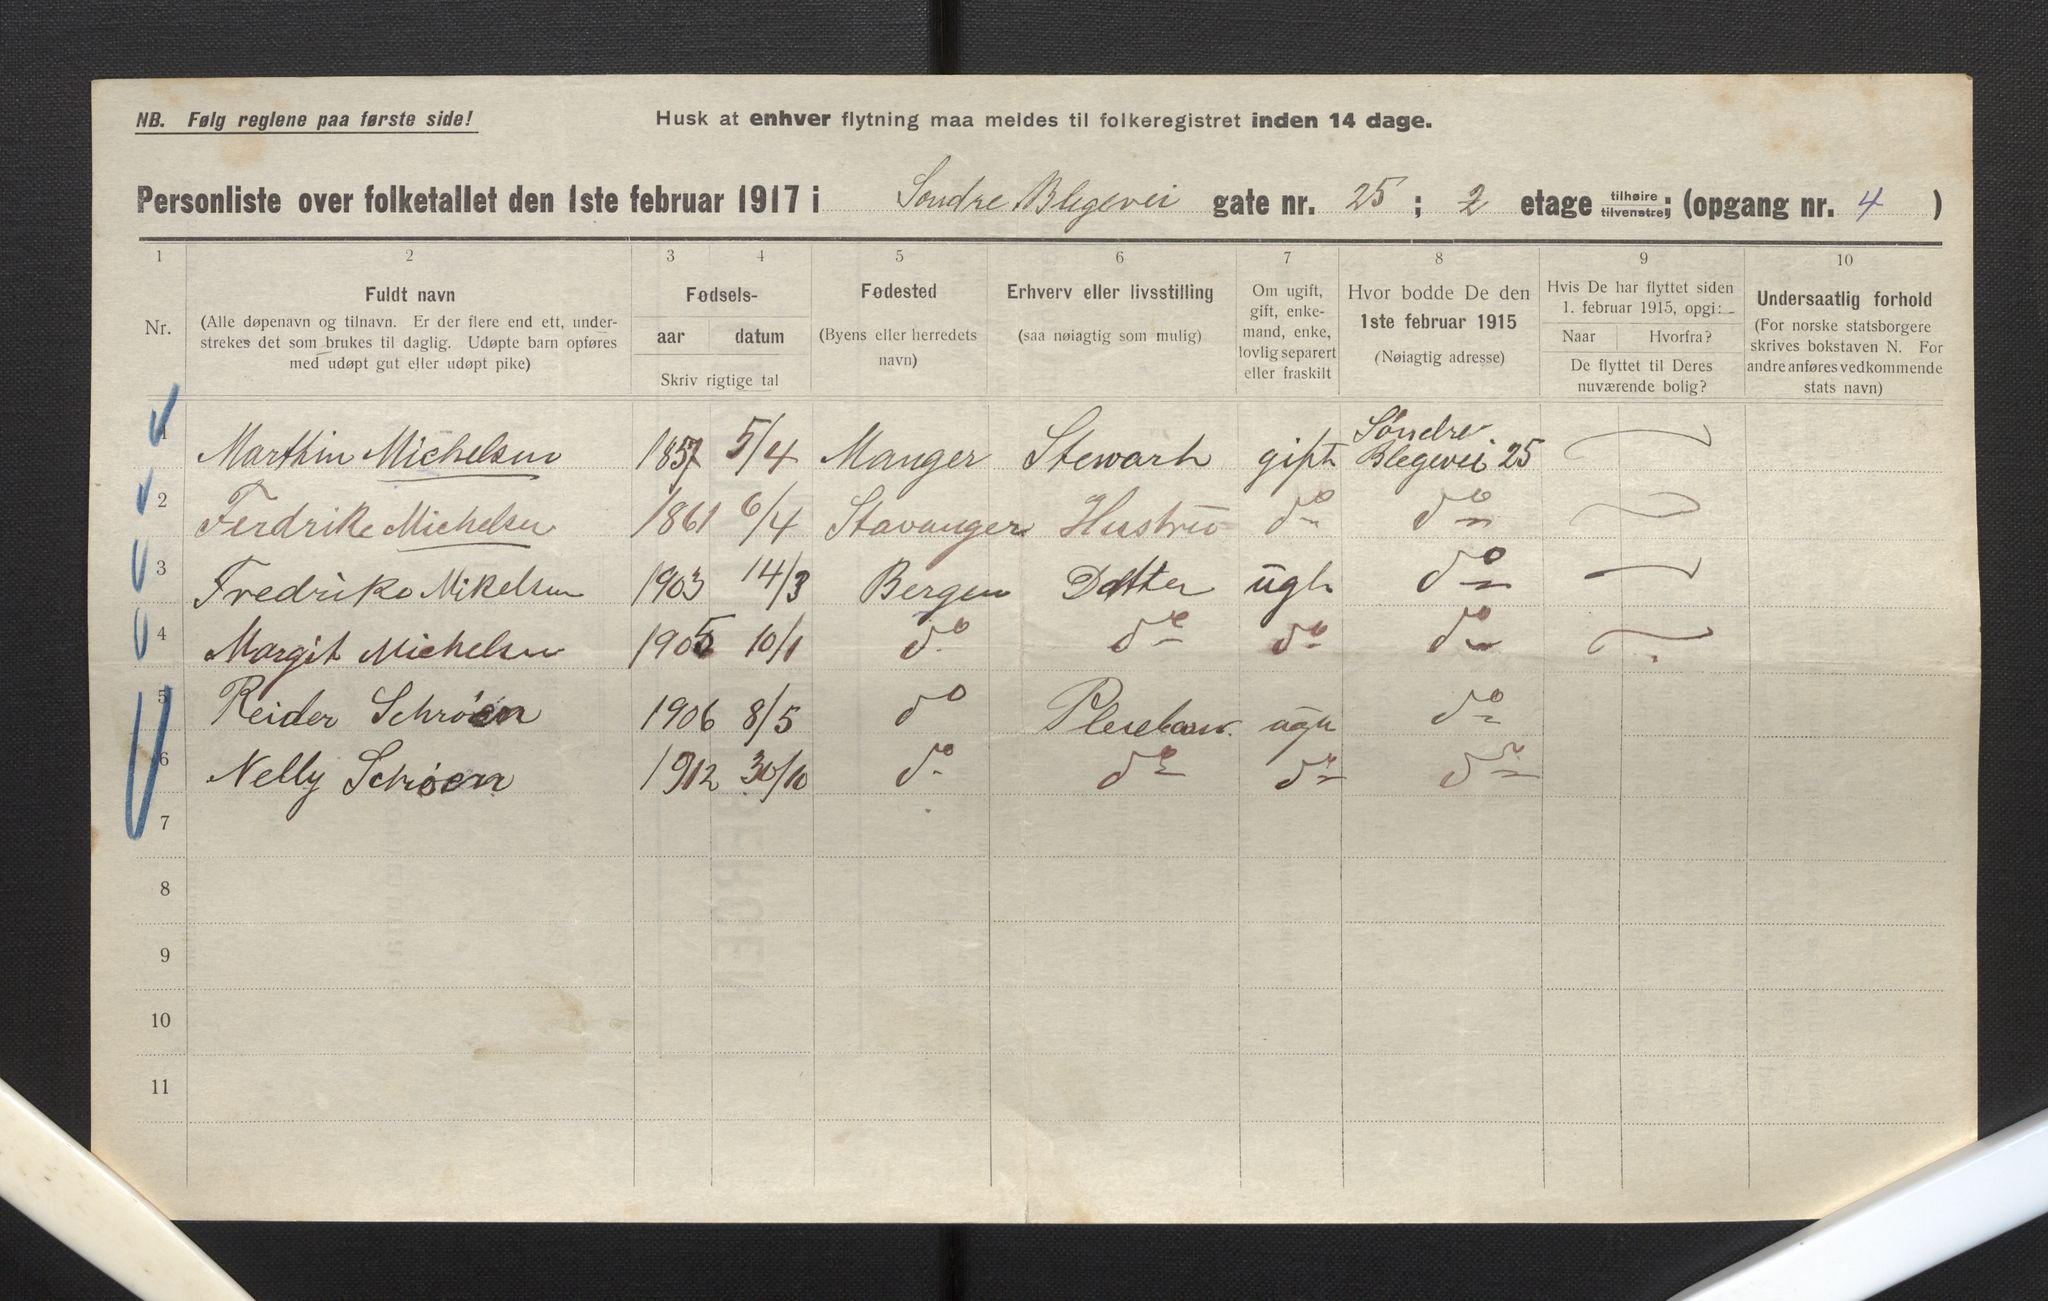 NB. Følg reglene paa første side!
Husk at enhver flytning maa meldes til folkeregistret inden 14 dage.
Personliste over folketallet den 1ste februar 1917 i Søndre Blegevei gate nr. 25 ; 2 etage tilhøire tilvenstre; (opgang nr. 4 )
1 2 3 4 5 6 7 8 9 10
Nr.
Fuldt navn
(Alle døpenavn og tilnavn. Er der flere end ett, under-
strekes det som brukes til daglig. Udøpte barn opføres
med udøpt gut eller udøpt pike)
Fødsels-
aar datum
Skriv rigtige tal
Fødested
(Byens eller herredets
navn)
Erhverv eller livsstilling
(saa nøiagtig som mulig)
Om ugift,
gift, enke-
mand, enke,
lovlig separert
eller fraskilt
Hvor bodde De den
1ste februar 1915
(Nøiagtig adresse)
Hvis De har flyttet siden
1. februar 1915, opgi:
Naar Hvorfra?
De flyttet til Deres
nuværende bolig?
Undersaatlig forhold
(For norske statsborgere
skrives bokstaven N. For
andre anføres vedkommende
stats navn)
1 Marthin Michelsen 1857 5/4 Manger Stewart gift Søndre Blegevei 25
2 Ferdrike Michelsen 1861 6/4 Stavanger Hustru do do
3 Fredrike Mikelsen 1903 14/3 Bergen Datter ugh do
4 Margit Michelsen 1905 10/1 do do do do
5 Reider Schrøen 1906 8/5 do Pleiebarn ugh do
6 Nelly Schrøen 1912 30/10 do do do do
7
8
9
10
11